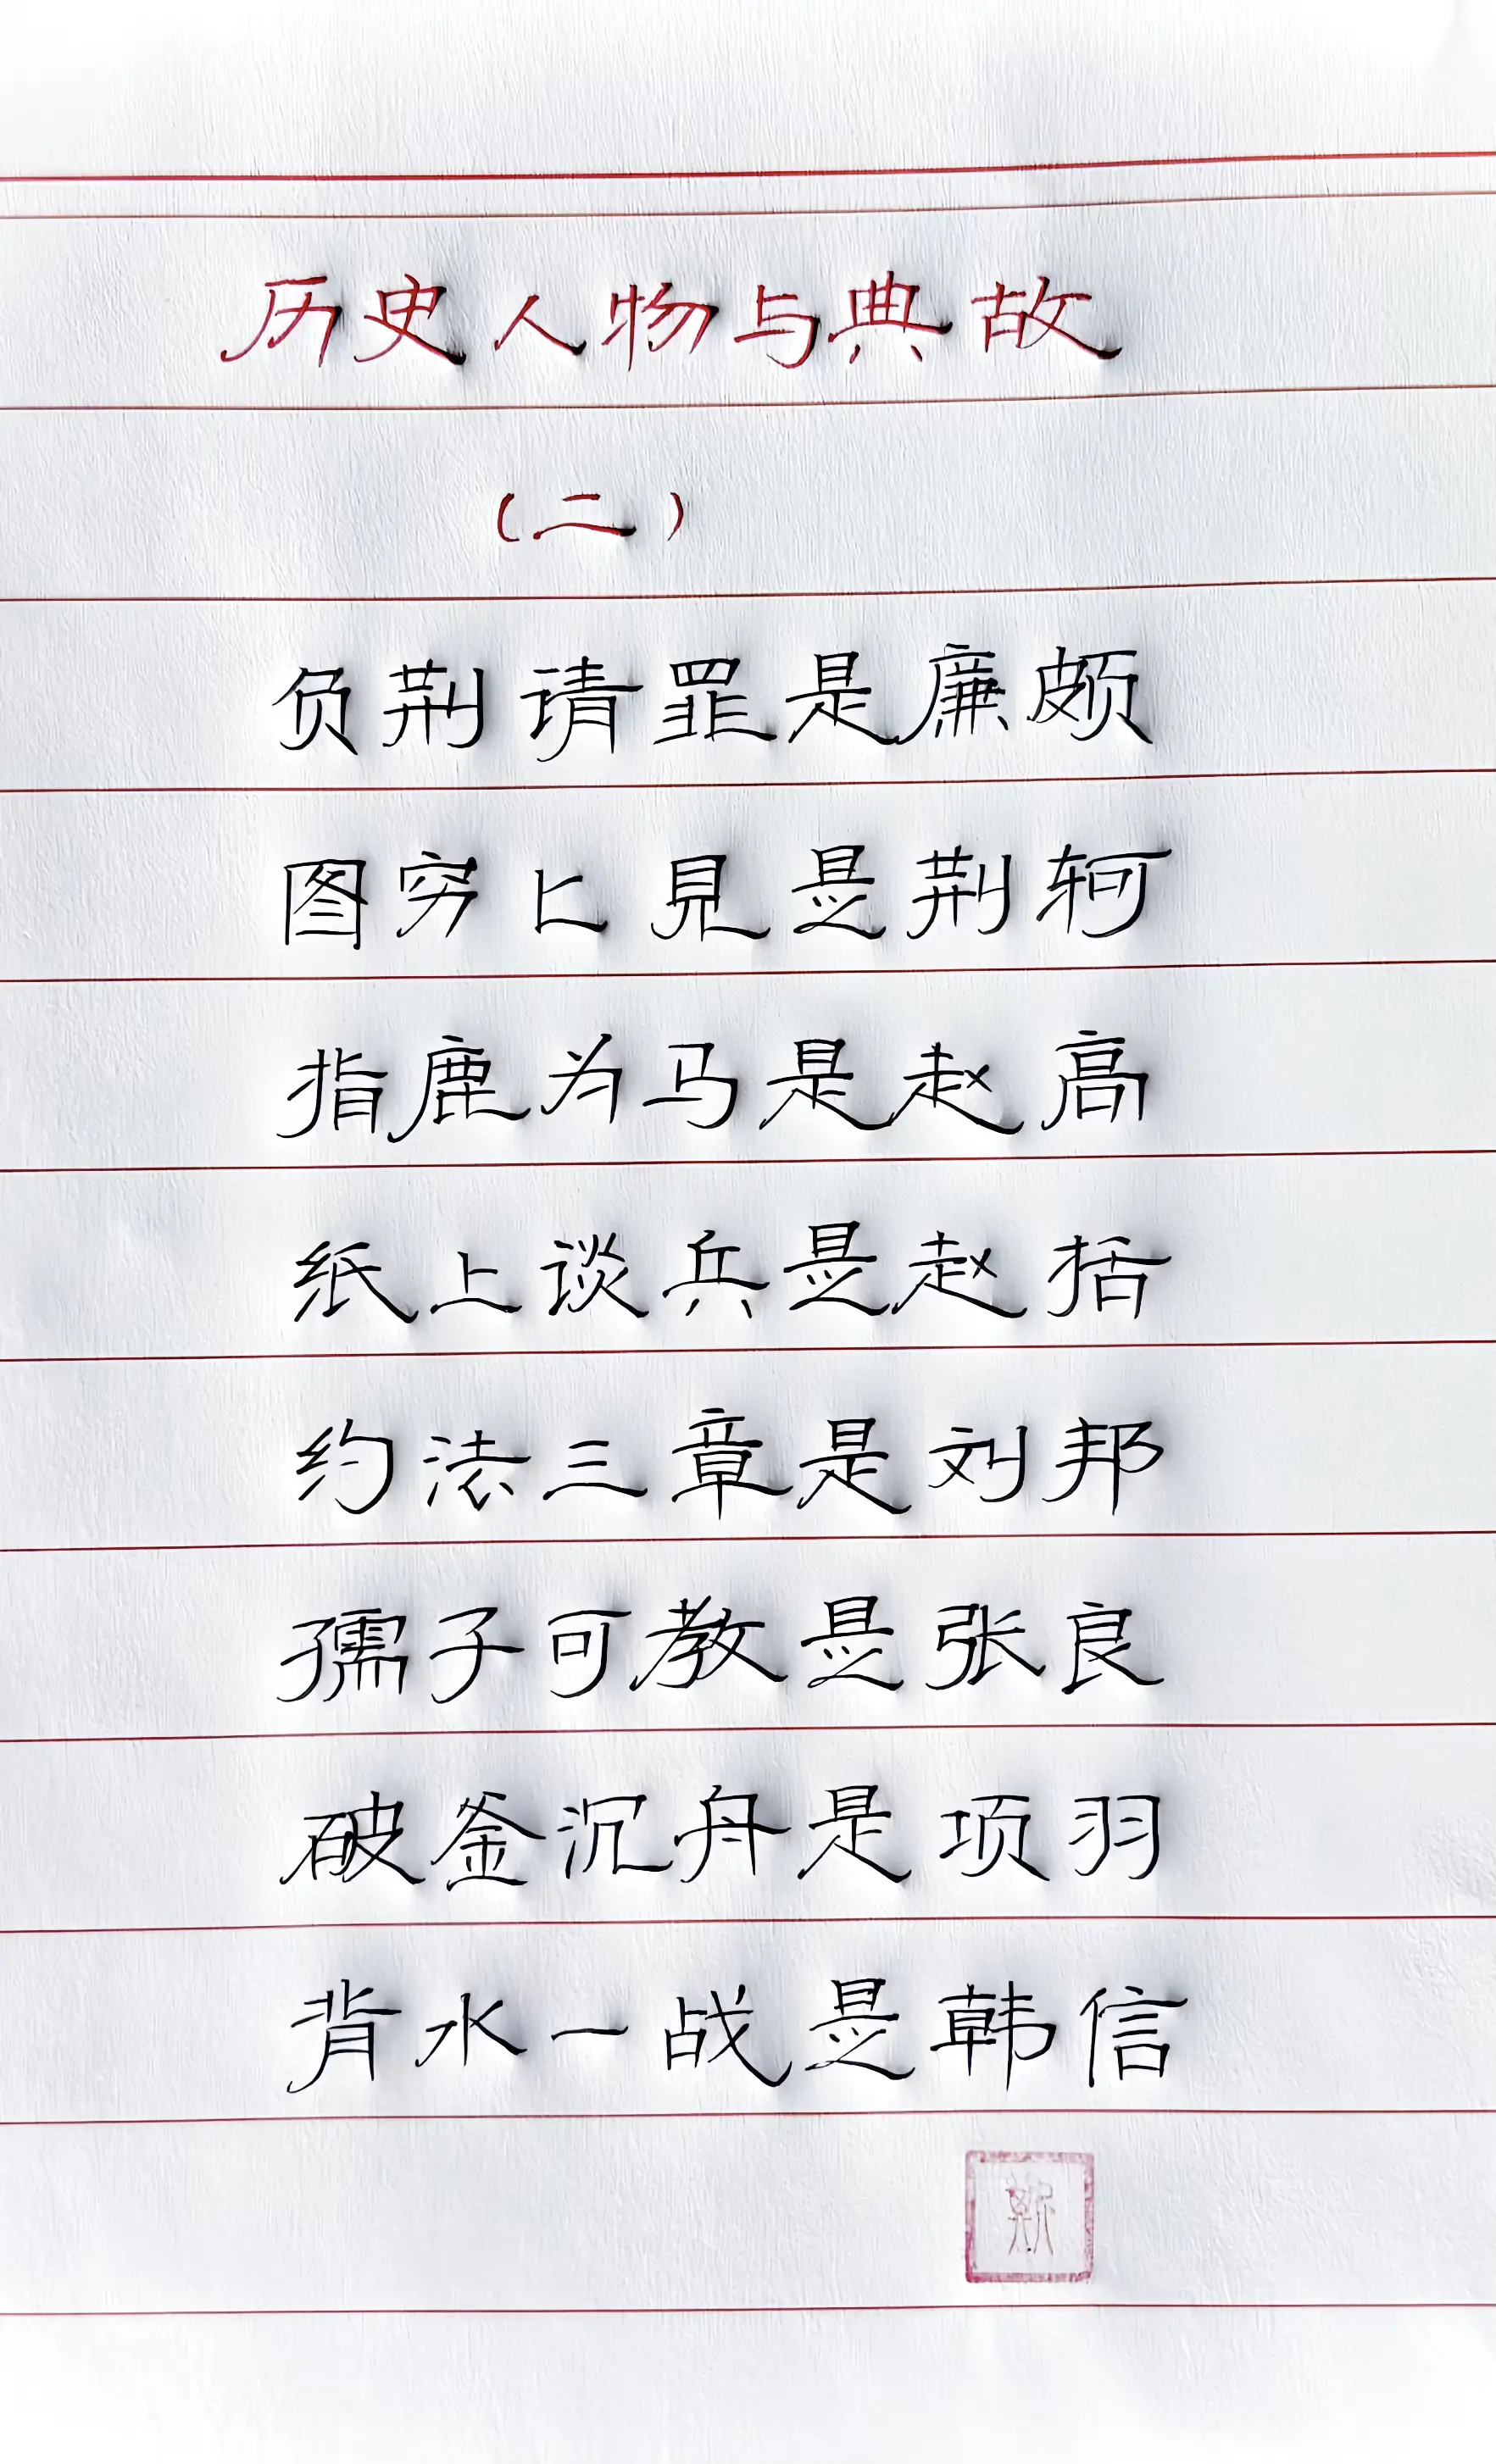 历史人物与典故
（二）
负荆请罪是廉颇
图穷匕見是荆轲
指鹿为马是赵高
纸上谈兵是赵括
约法三章是刘邦
孺子可教是张良
破釜沉舟是项羽
背水一战是韩信